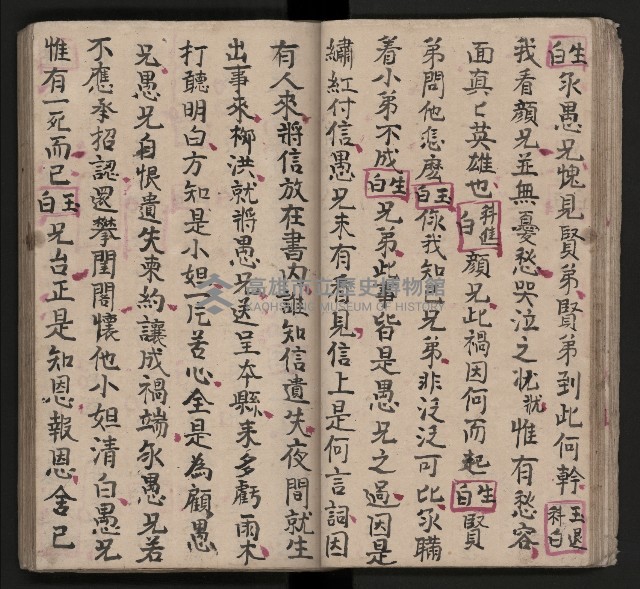 生白永愚兄愧見賢弟賢弟到此何幹玉退科白
我看顏兄並無憂愁哭泣之狀犹惟有愁容
面真〻英雄也科進白顏兄此禍因何而起生白賢
弟問他怎麼玉白你我知己兄弟非泛泛可比永瞞
着小弟不成生白兄弟此事皆是愚兄之過因是
繡紅付信愚兄未有看見信上是何言詞因
有人來將信放在書內誰知信遺失夜間就生
出事來柳洪就將愚兄送呈本縣來多虧雨木
打聽明白方知是小妲一片苦心全是為顧愚
兄愚兄自恨遺失柬約讓成禍端永愚兄若
不應承招認還攀閨閣懷他小妲清白愚兄
惟有一死而已玉白兄台正是知恩報恩舍已
高雄市立歷史博物館
KAOHSIUNG MUSEUM OF HISTORY